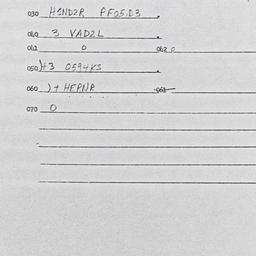 030 H1ND2R PF05.D3
040 3 VAD2L
041 0 042 0
050 H3 0594KS
060 ) + HEPNR 061
070 0